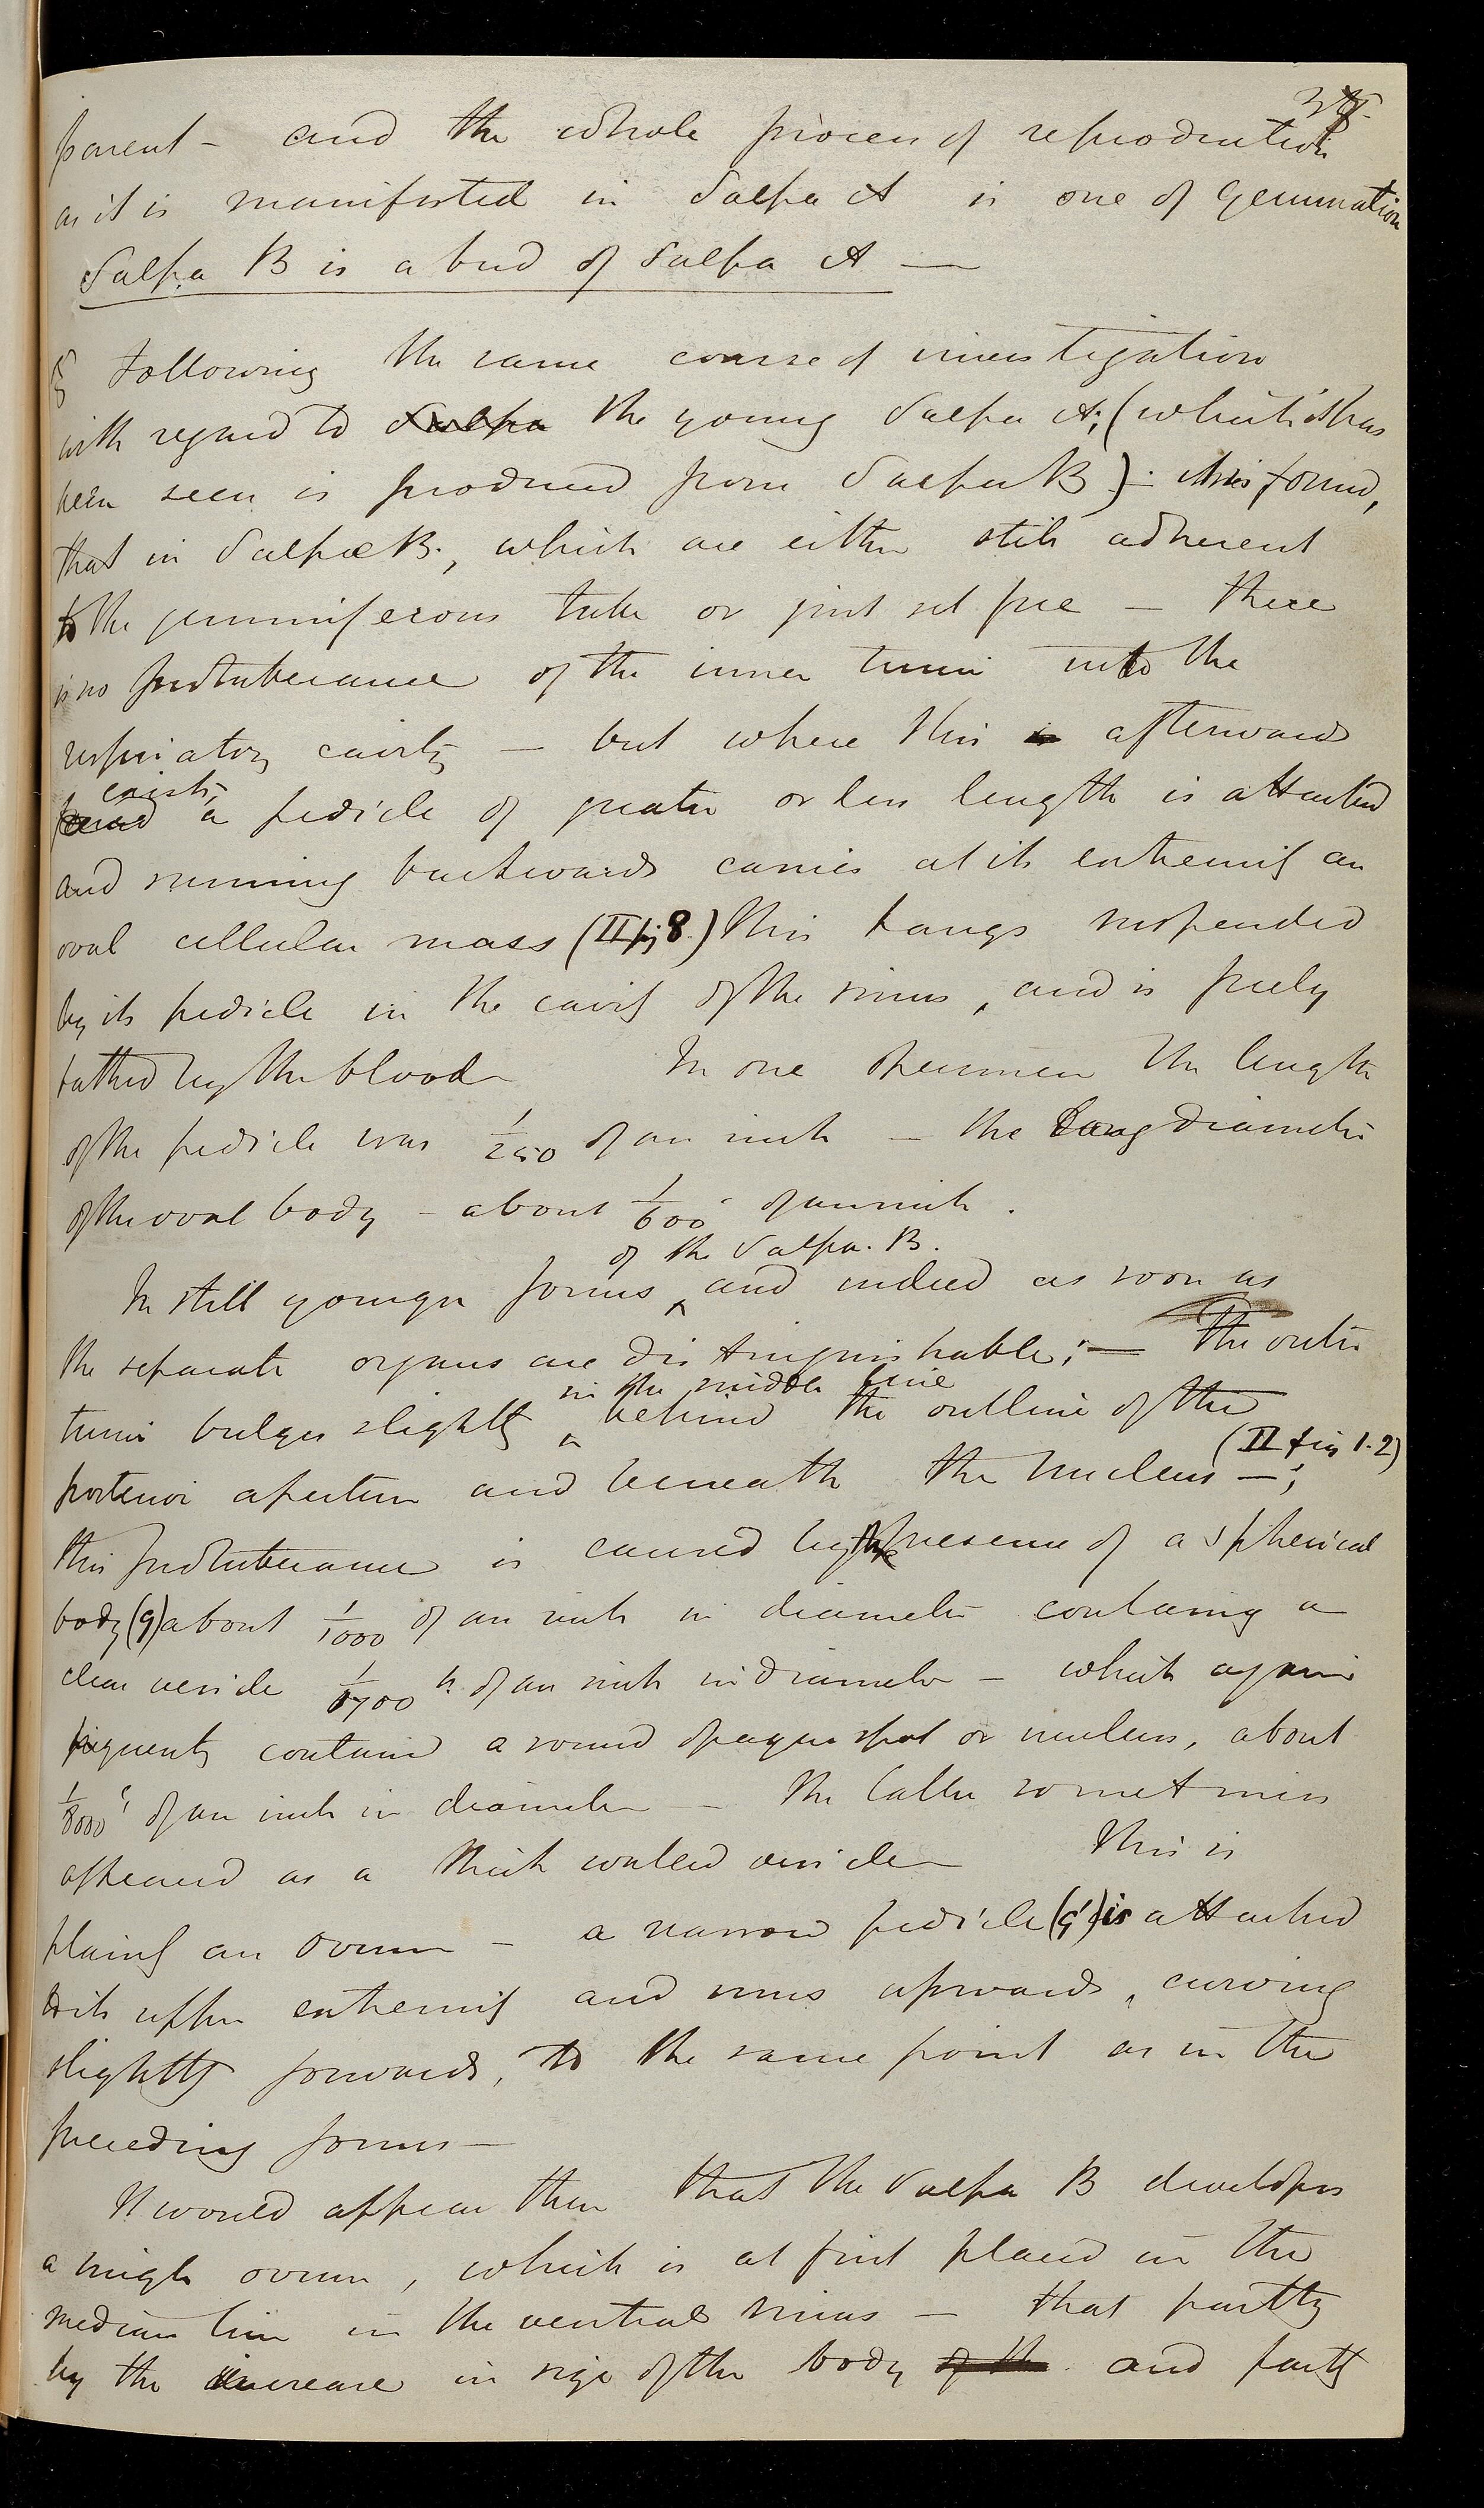 parent – and the whole process of reproduction
as it is manifested in Salpa A is one of gemmation
Salpa B is a bud of Salpa A —
§ Following the same course of investigation
with regard to Salpa the young Salpa A; (which it has
been seen is produced from Salpa B): it is found,
that in Salpæ B., which are either still adherent
to the gemmiferous tube or just set free — there
is no protuberance of the inner tunic into the
respiratory cavity — but where this is afterwards
exists,
found a pedicle of greater or less length is attached
and running backwards carries at its extremity an
oval cellular mass (II fig 8.) this hangs suspended
by its pedicle in the cavity of the sinus, and is freely
bathed by the blood – In one specimen the length
of the pedicle was 1/250 of an inch — the long diameter
of the oval body – about 1/600 of an inch.
of the Salpa. B.
In still younger forms ‸ and indeed as soon as
the separate organs are distinguishable; — the outer
in the middle line
tunic bulges slightly ‸ behind the outline of the
(II fig 1.2)
posterior aperture and beneath the nucleus —;
this protuberance is caused by the presence of a spherical
body (g) about 1/1000 of an inch in diameter containing a
clear vesicle 1/1700 th of an inch in diameter — which again
frequently contained a round opaque spot or nucleus, about
1/8000 of an inch in diameter — the latter sometimes
appeared as a thick walled vesicle – This is
plainly an ovum – a narrow pedicle (g') is attached
to its upper extremity and runs upwards, curving
slightly forwards, to the same point as in the
preceding forms —
It would appear then that the Salpa B developes
a single ovum, which is at first placed in the
median line in the ventral sinus — that partly
by the increase in size of the body of the and partly